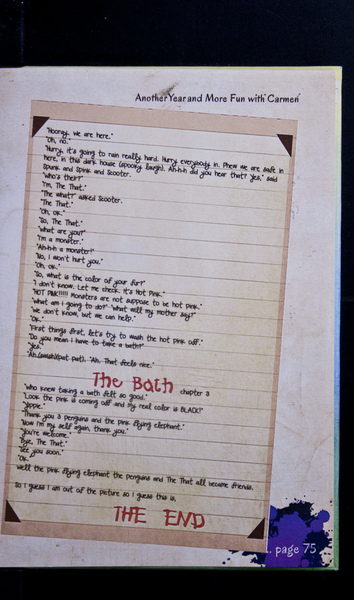 Another Year and More Fun with Carmen
"Hooray, we are here."
"Oh, no."
"Hurry, it's going to rain really hard. Hurry everybody in. Phew we are safe in
here, in this dark house (spooky laugh). Ah-h-h did you hear that? Yes," said
Spunk and Spink and Scooter.
"Who's their?"
"I'm, The That."
"The what?" asked Scooter.
"The That."
"Oh, ok."
"So, The That."
"What are you?"
"I'm a monster."
"Ah-h-h a monster?"
"No, I won't hurt you."
"Oh, ok."
"So, what is the color of your fur?"
"I don't know. Let me check. It's Hot Pink."
"HOT PINK!!!!! Monsters are not suppose to be hot pink."
"What am I going to do?" "What will my mother say?"
"We don't know, but we can help."
"Ok."
"First things first, let's try to wash the hot pink off."
"Do you mean I have to take a bath?"
"Yes."
"Ah (swish)(pat pat). "Ah. That feels nice."
The Bath chapter 3
"Who knew taking a bath felt so good."
"Look the pink is coming off and my real color is BLACK!"
"Yippie."
"Thank you 3 penguins and the pink flying elephant."
"Now I'm my self again, thank you."
"You're welcome."
"Bye, The That."
"See you soon."
"Ok."
Well the pink flying elephant the penguins and The That all became friends.
So I guess I am out of the picture so I guess this is,
THE END
page 75